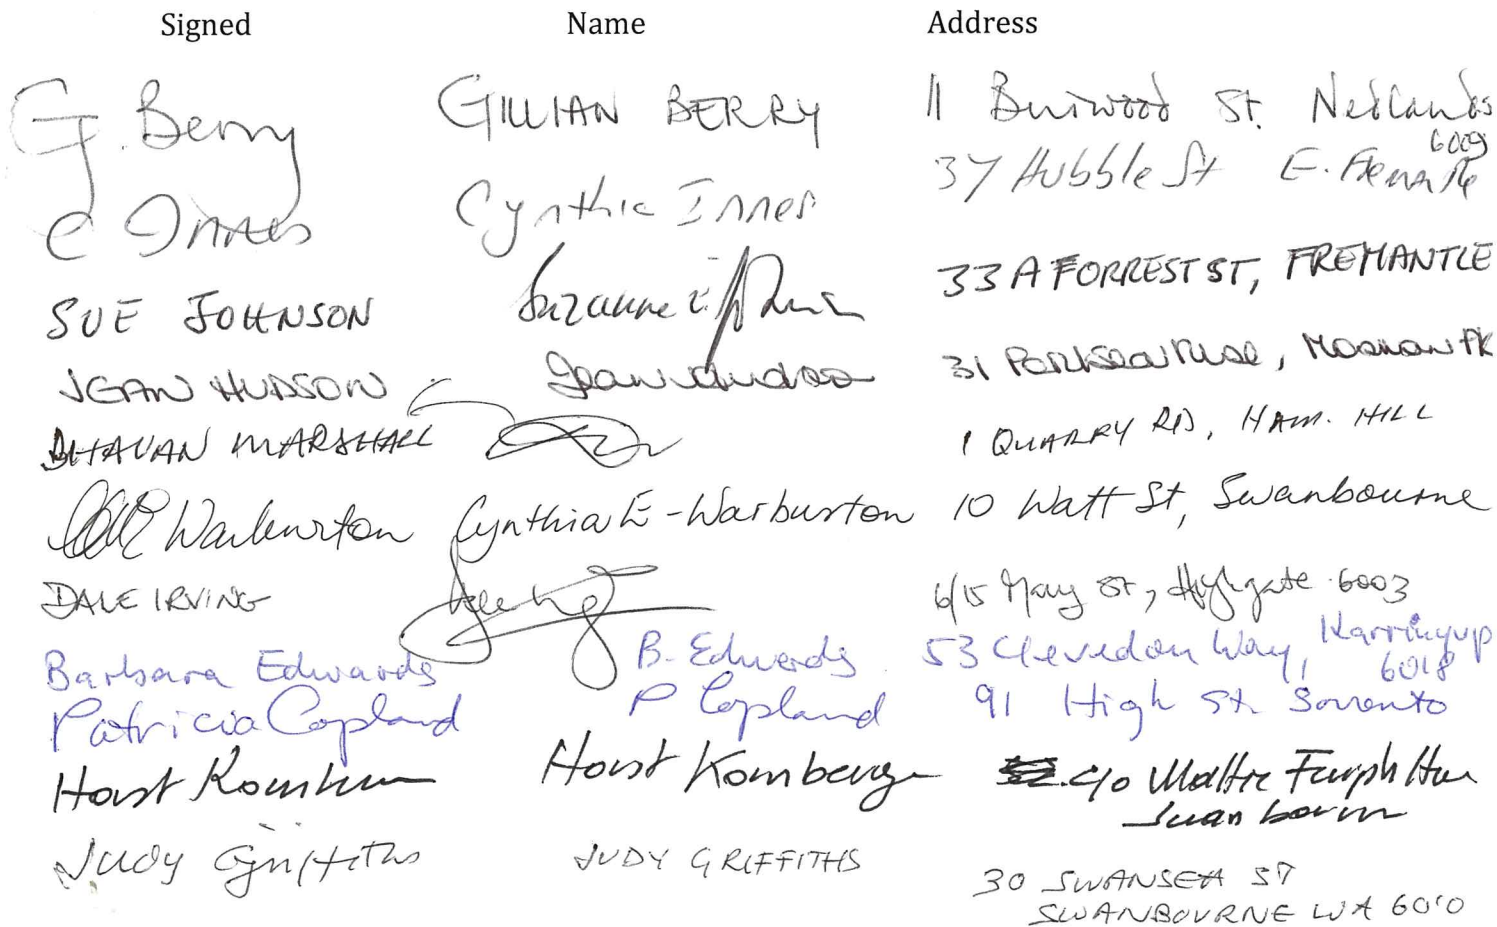 Signed Name Address
G. Berry GILLIAN BERRY 11 Burwood St. Nedlands
6009
C Innes Cynthia Innes 37 Hubble St E. Fremantle
SUE JOHNSON Suzanne E 33A FORREST ST, FREMANTLE
JEAN HUDSON Jean Hudson 31 Rise, Mosman PK
BHAVAN MARSHALL 1 QUARRY RD, HAM. HILL
Warburton Cynthia E-Warburton 10 Watt St, Swanbourne
DALE IRVING 6/15 Mary St, Highgate 6003
Barbara Edwards B. Edwards 53 Clevedon Way, Karrinyup
6018
Patricia Copland P Copland 91 High St. Sorrento
Horst Kornberger Horst Kornberger c/o Mattie Furph Hse
Swanbourne
Judy Griffiths JUDY GRIFFITHS 30 SWANSEA ST
SWANBOURNE WA 6010